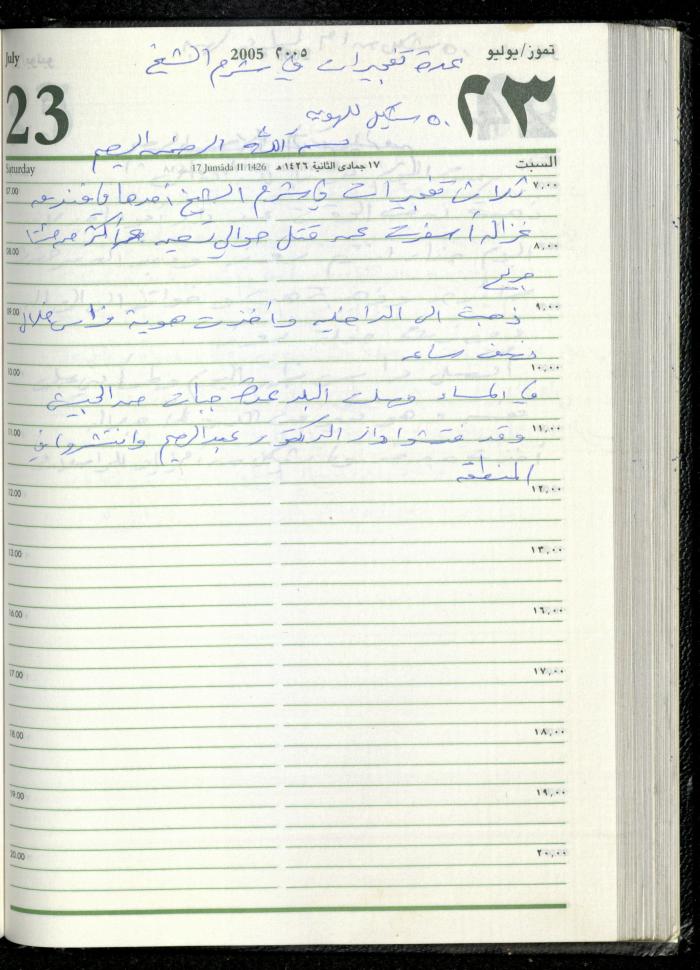 July 2005 ٢٠٠٥ تموز/يوليو
عدة تفجيرات في شرم الشيخ
23 ٢٣
٥٠ شيكل للهوية
بسم الله الرحمن الرحيم
Saturday 17 Jumáda II 1426 ١٧ جمادى الثانية ١٤٢٦ هـ السبت
07.00 ٧,٠٠
ثلاث تفجيرات في شرم الشيخ أحدها في فندق
غزالة أسفرت عن قتل حوالي تسعين و أكثر من مئتا
08.00 ٨,٠٠
جريح
09.00 ٩,٠٠
ذهبت الى الداخليه وأخذت هوية فراس خلال
نصف ساعه
10.00 ١٠,٠٠
في المساء وصلت البلد عدة جيبات من الجيش
11.00 ١١,٠٠
وقد فتشوا دار الدكتور عبدالرحيم وانتشروا في
المنطقه
12.00 ١٢,٠٠
13.00 ١٣,٠٠
16.00 ١٦,٠٠
17.00 ١٧,٠٠
18.00 ١٨,٠٠
19.00 ١٩,٠٠
20.00 ٢٠,٠٠